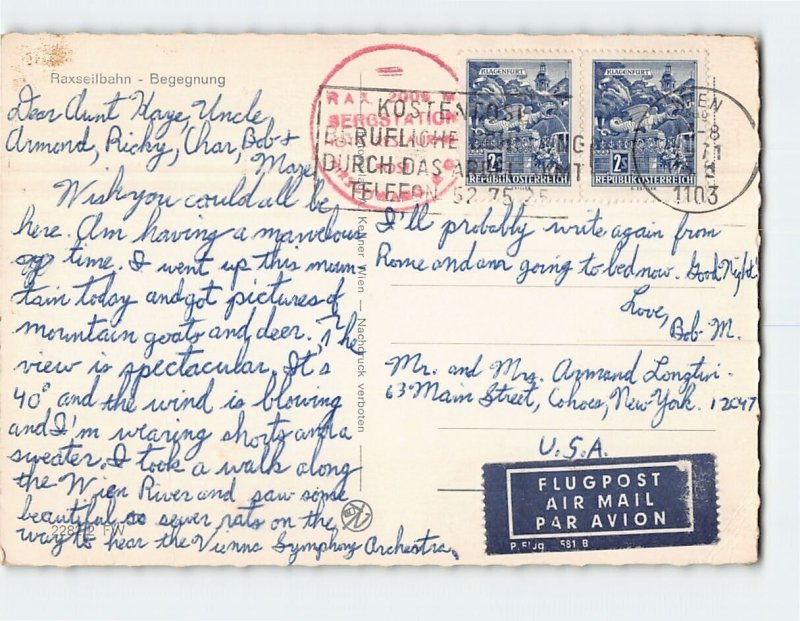 Raxseilbahn - Begegnung
Dear Aunt Kaye, Uncle
Armond, Ricky, Char, Bob &
Maze
Wish you could all be
here. Am having a marvelous
time. I went up this moun-
tain today and got pictures of
mountain goats and deer. The
view is spectacular. It's
40° and the wind is blowing
and I'm wraring shorts and a
sweater. I took a walk along
the Wien River and saw some
beautiful sewer rats on the
way to hear the Vienna Symphony Orchestra.
22812 FW
Kellner Wien — Nachdruck verboten
RAX 2009 m
BERGSTATION
KOSTENLOSE
BERUFLICHE
DURCH DAS
TELEFON 52 75 25
KLAGENFURT
2S
REPUBLIK ÖSTERREICH
KLAGENFURT
2S
REPUBLIK ÖSTERREICH
WIEN
-8
71
1103
I'll probably write again from
Rome and am going to bed now. Good Night
Love,
Bob M.
Mr. and Mrs. Armand Longtin
63 Main Street, Cohoes, New York. 12047
U.S.A.
FLUGPOST
AIR MAIL
PAR AVION
P. Flug 581 B